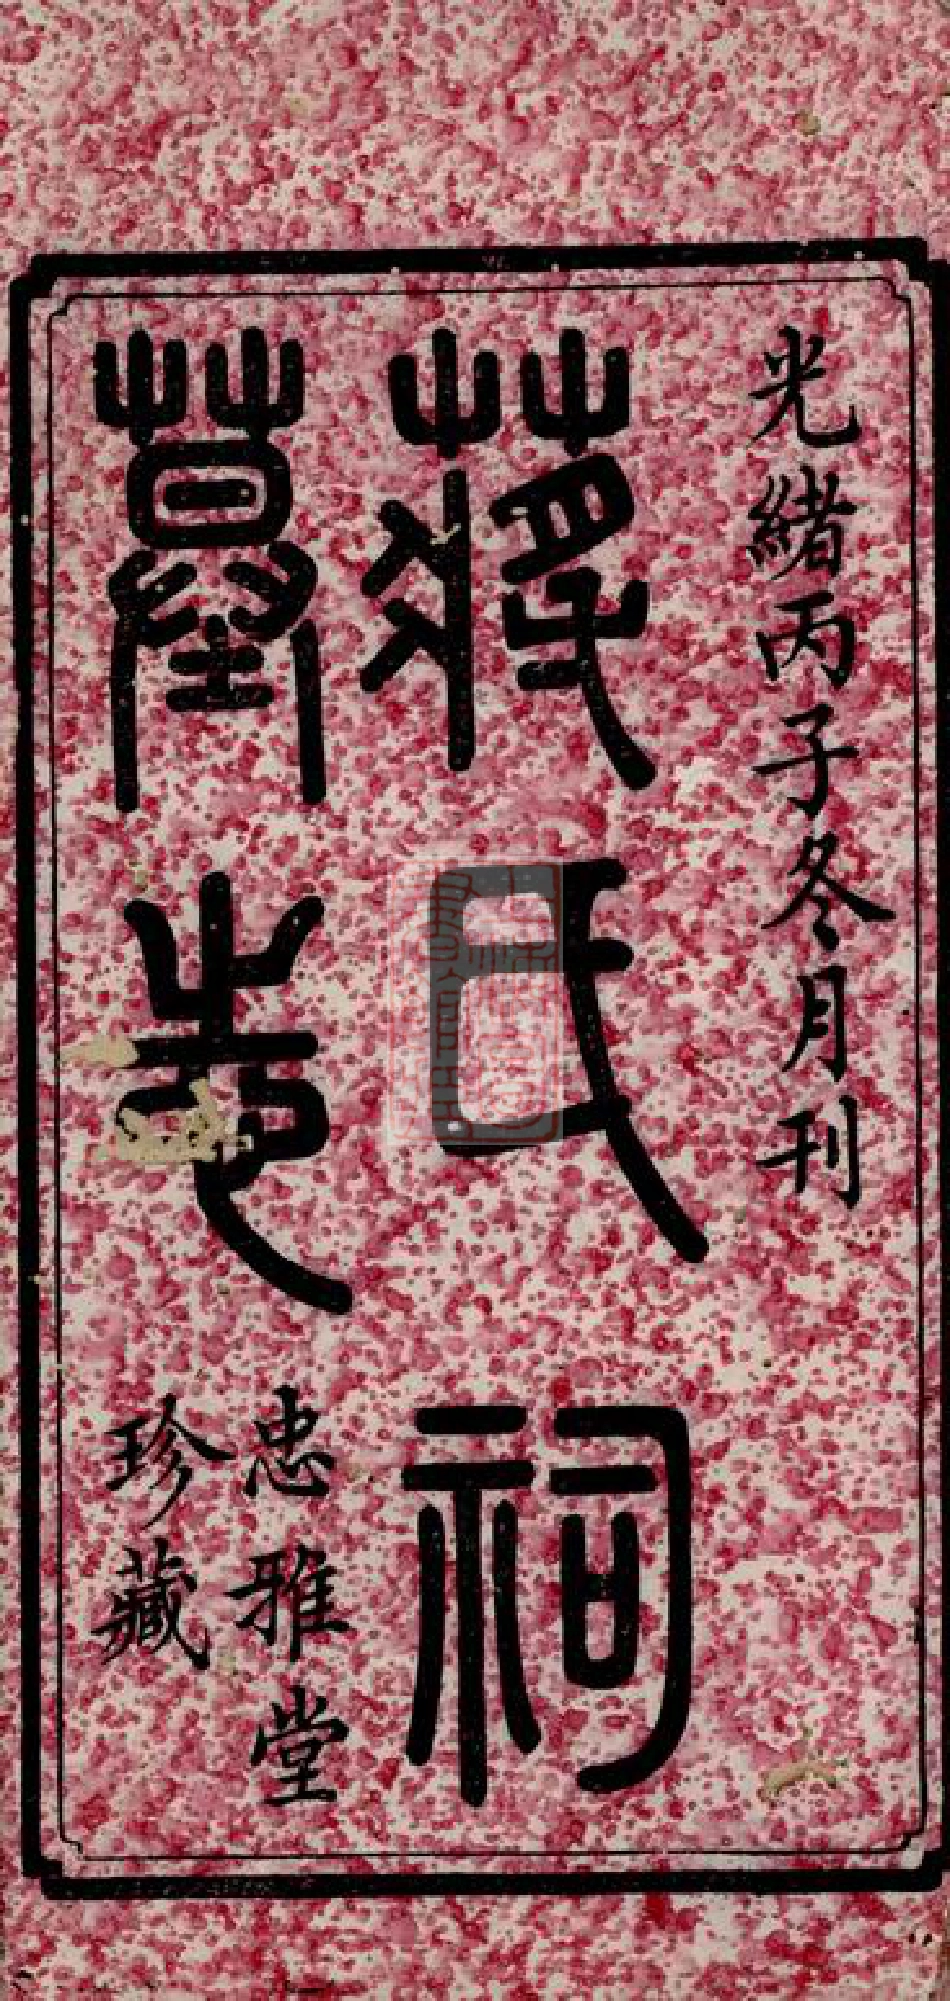 光緒丙子冬月刊
蔣氏祠
墓志
忠雅堂
珍藏